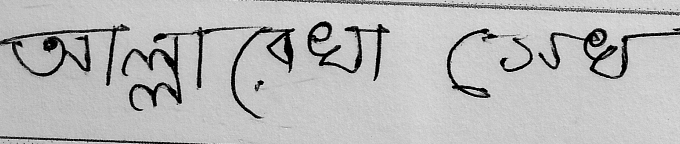 আল্লারেখা সেখ